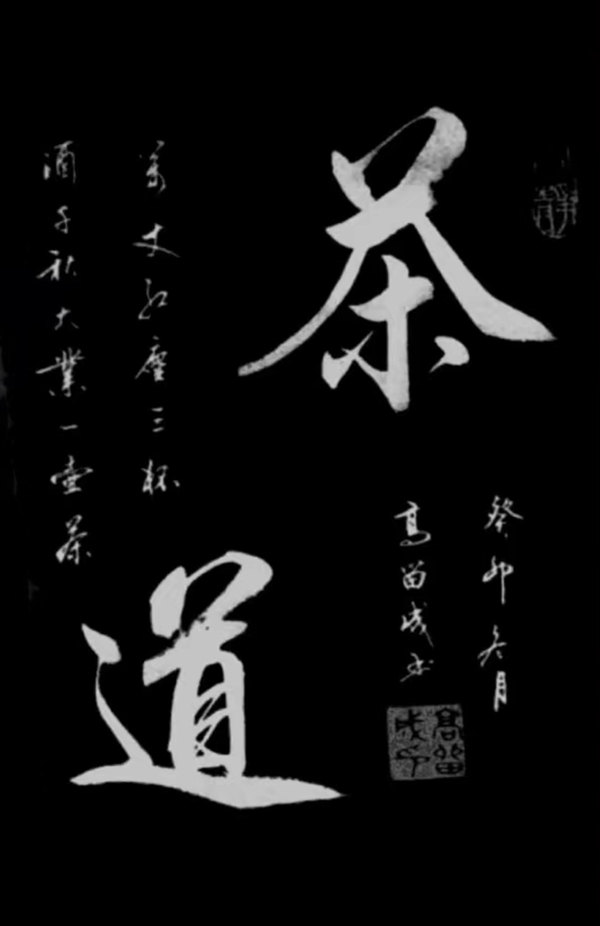 茶
道
癸卯冬月
高留成书
高留成印
萬丈红塵三杯
酒千秋大業一壺茶